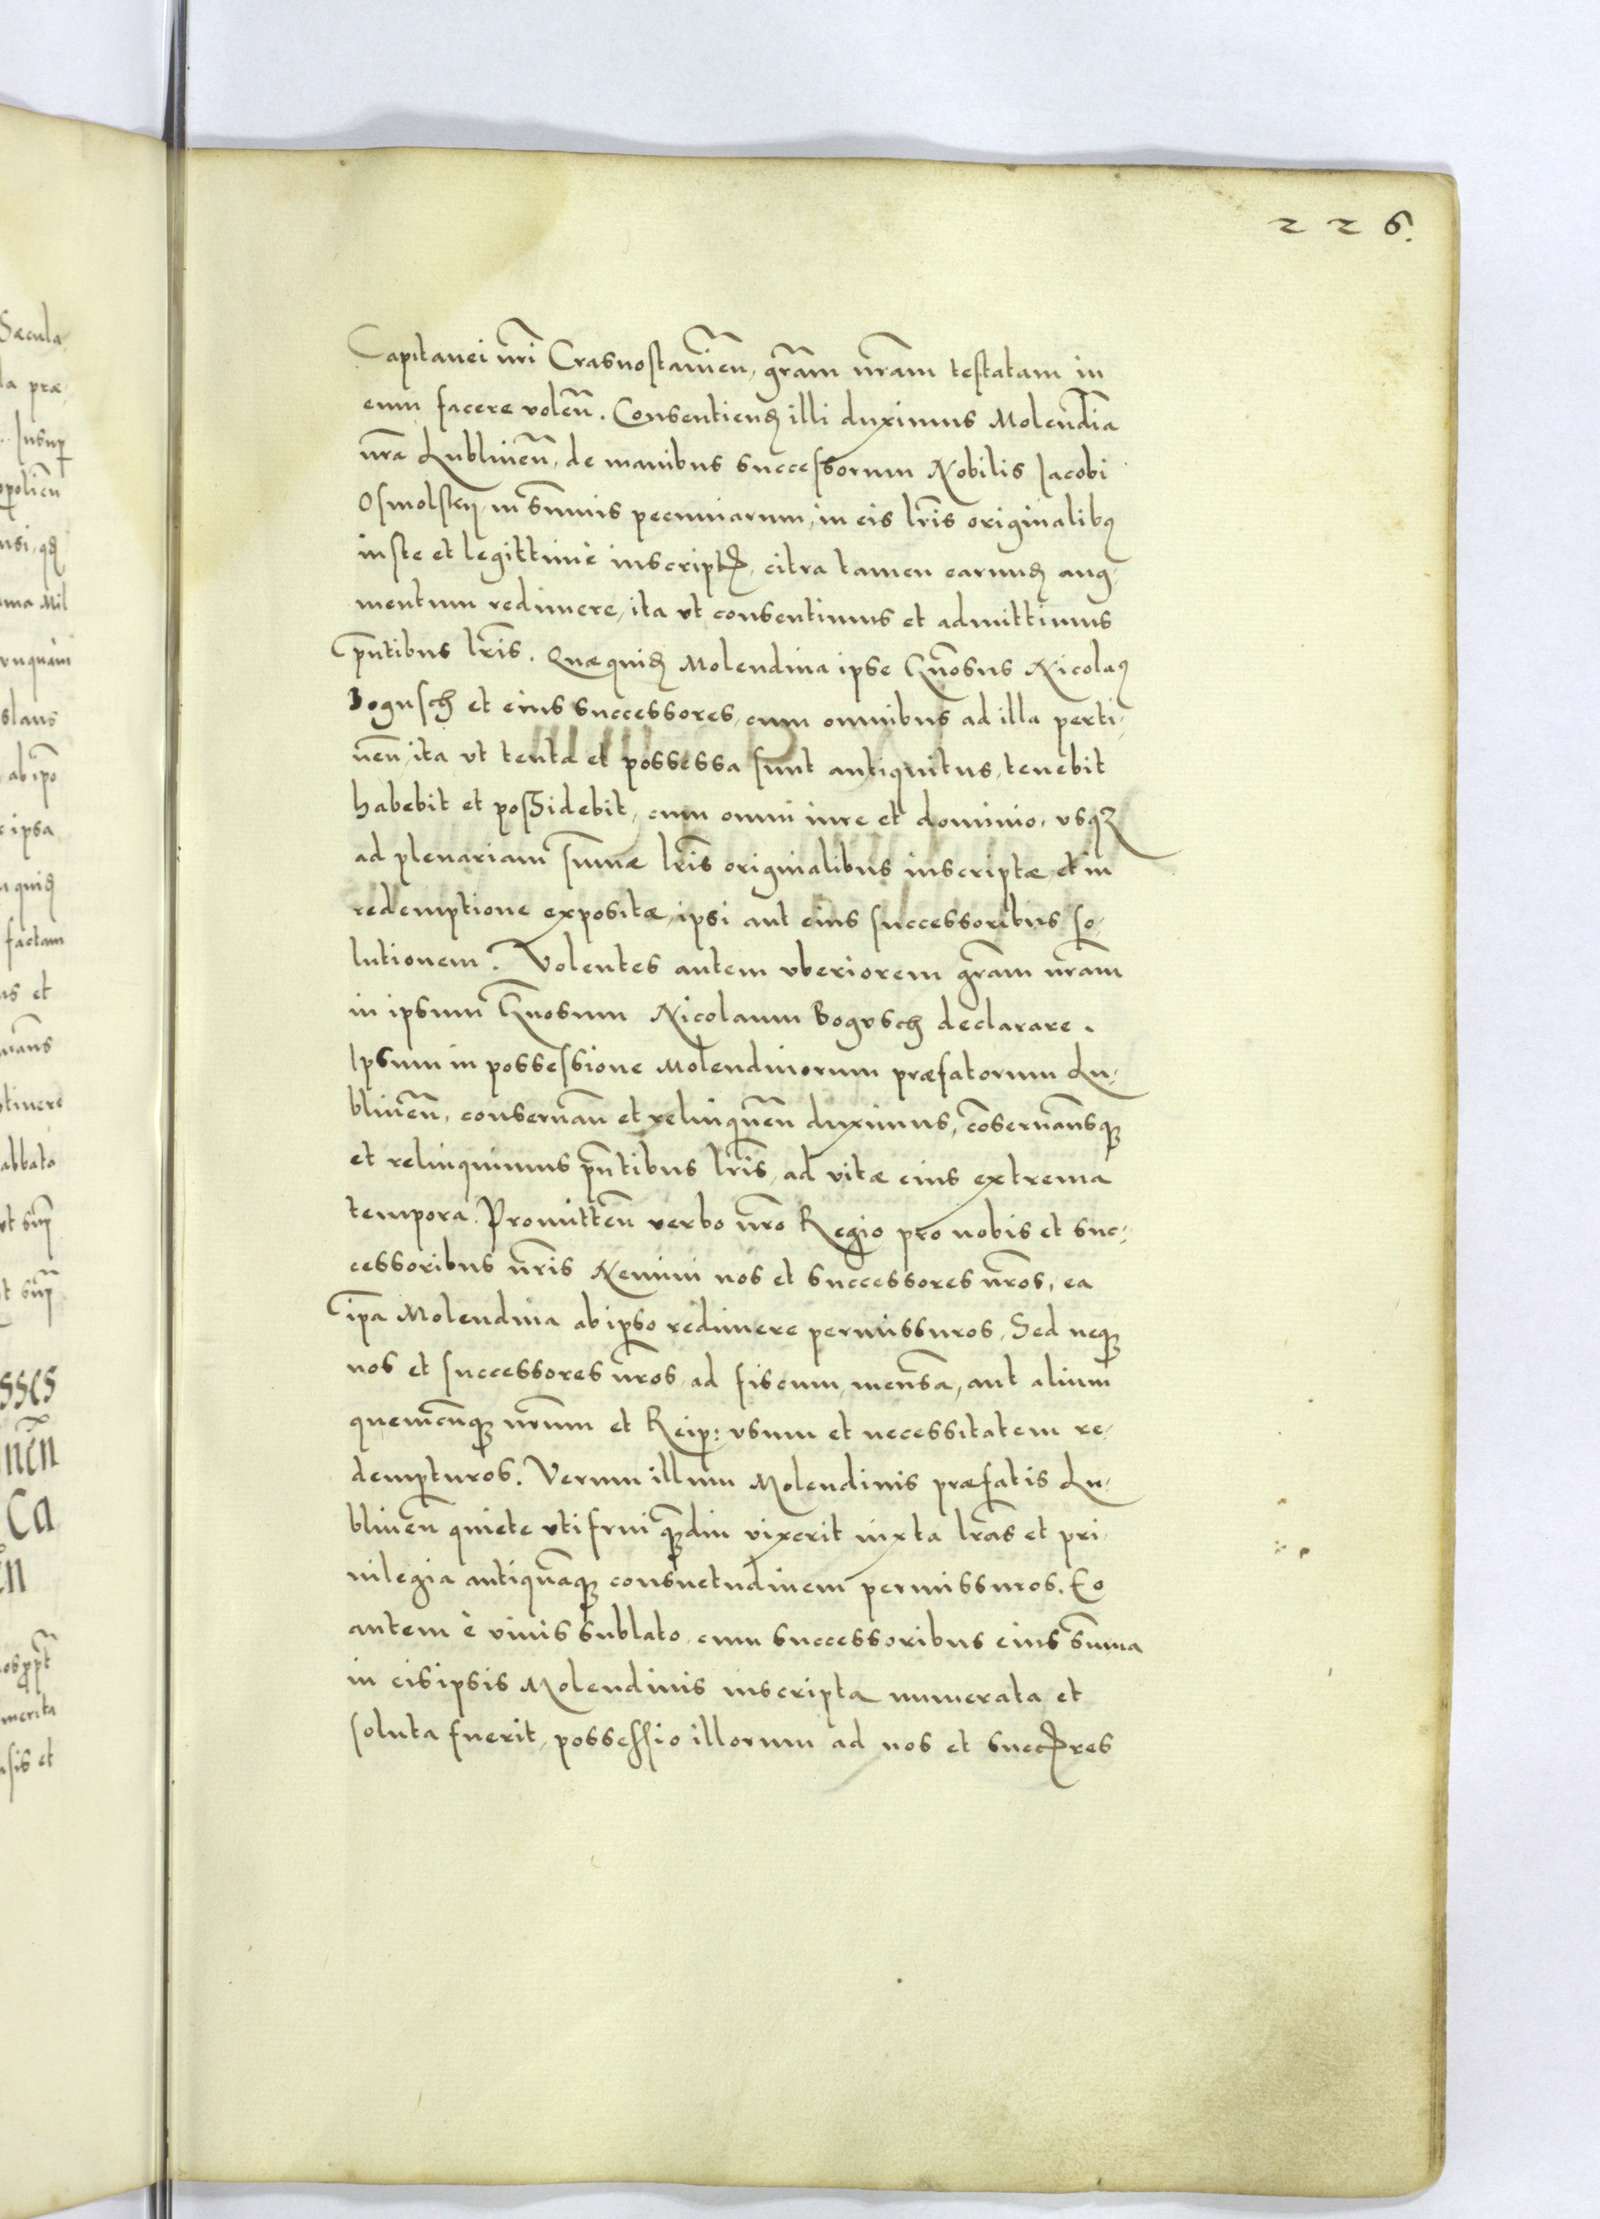 226.
Capitanei nr̃i Crasnostavien̄, gr̃am nr̃am testatam in
eum facere volen̄. Consentiend̨ illi duximus Molend̄ia
nr̃a Lublinen̄, de manibus successorum Nobilis Jacobi
Osmolskij, in sum̄is pecuniarum, in eis lr̃is originalibꝰ
iuste et legittimè inscript̨, citra tamen earund̨ aug-
mentum redimere, ita vt consentimus et admittimus
p̄ntibus lr̃is. Quæquid̨ Molendina ipse Gn̄osus Nicolaꝰ
Bogusch et eius successores, cum omnibus ad illa perti-
nen̄, ita vt tenta et possessa sunt antiquitus, tenebit
habebit et possidebit, cum omni iure et dominio, vsqꝫ
ad plenariam sum̄æ lr̃is originalibus inscriptæ et in
redemptione expositæ, ipsi aut eius successoribus so-
lutionem. Volentes autem vberiorem gr̃am nr̃am
in ipsum Gn̄osum Nicolaum Bogvsch declarare.
Ipsum in possessione Molendinorum præfatorum Lu-
blinen̄, conservan̄ et relinquen̄ duximus, cōservam̄usqꝫ
et relinquimus p̄ntibus lr̃is, ad vitæ eius extrema
tempora. Promitten̄ verbo nr̃o Regio pro nobis et suc-
cessoribus nr̃is Nemini nos et successores nr̃os, ea
ip̄a Molendina ab ipso redimere permissuros, Sed neqꝫ
nos et successores nr̃os, ad fiscum, mensā, aut alium
quemcūqꝫ nr̃um et Reip: vsum et necessitatem re-
dempturos. Verum illum Molendinis præfatis Lu-
blinen̄ quiete vti frui quādiu vixerit iuxta lr̃as et pri-
uilegia antiquāqꝫ consuetudinem permissuros. Eo
autem è viuis sublato, cum successoribus eius sum̄a
in eisipsis Molendinis inscripta numerata et
soluta fuerit, possessio illorum ad nos et succ̨res